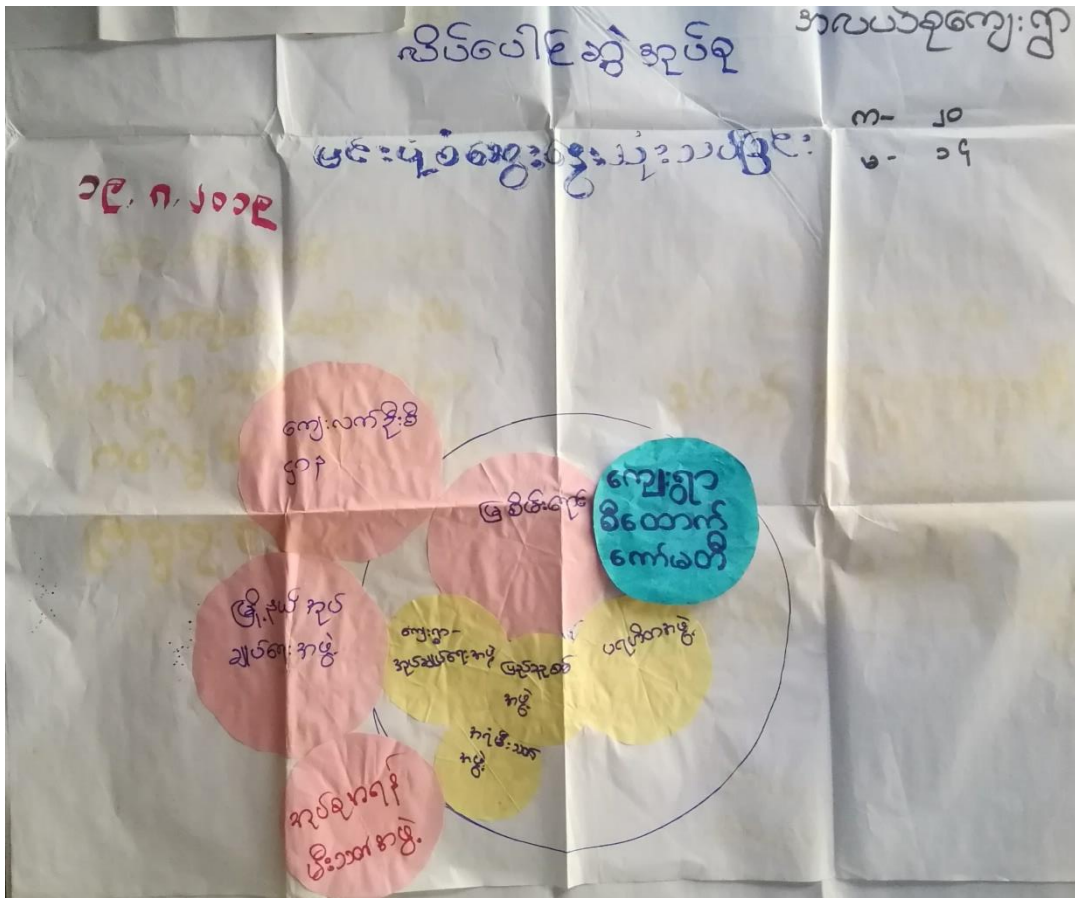 အလယ်စုကျေးရွာ
လိပ်ပေါင်ဆွဲအုပ်စု
က- ၂၀
မ- ၁၄
ပုံစံဆွေးနွေးသုံးသပ်ခြင်း
၁၉.၈.၂၀၁၉
ကျေးလက်ဦးစီး
ဌာန
မြစိမ်းရောင်
ကျေးရွာ
စီထောက်
ကော်မတီ
မြို့နယ်အုပ်
ချုပ်ရေးအဖွဲ့
ကျေးရွာ-
အုပ်ချုပ်ရေးအဖွဲ့
ပြည်သူ့စစ်
အဖွဲ့
ပရဟိတအဖွဲ့
အရံမီးသတ်
အဖွဲ့
အုပ်စုအရန်
မီးသတ်အဖွဲ့